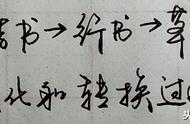 书→行书→草
化和转换过